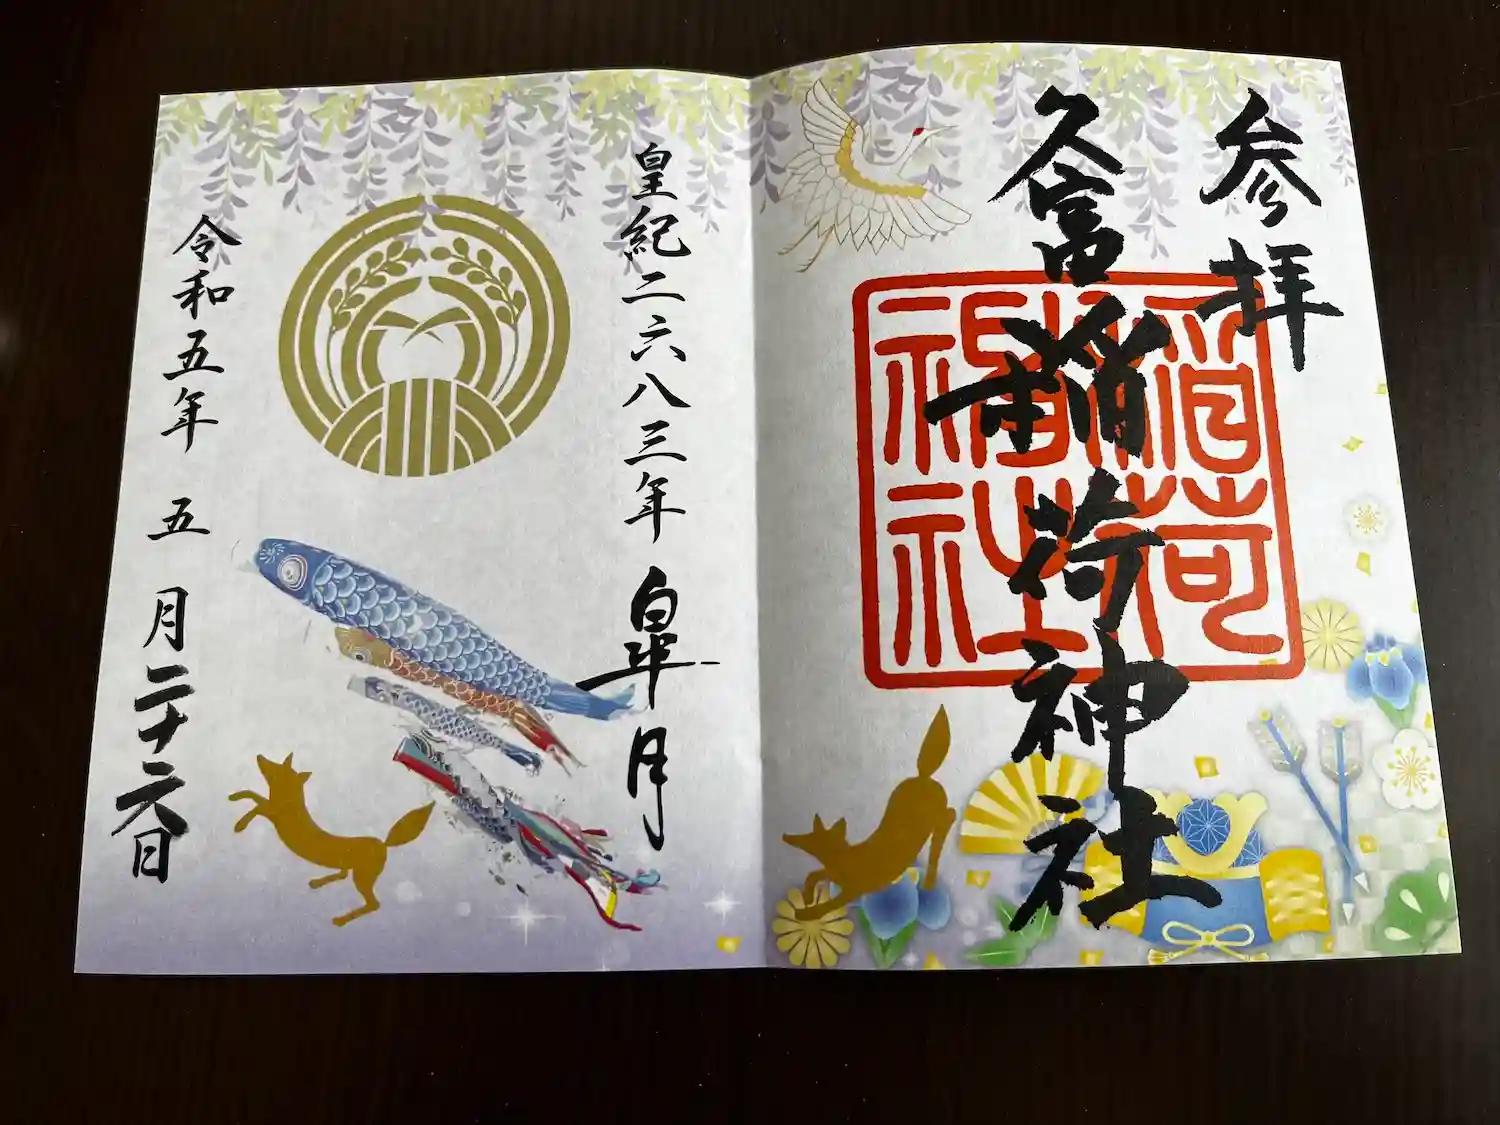 参拝
久富稲荷神社
稲荷
神社
皇紀二六八三年 皐月
令和五年 五 月二十六日